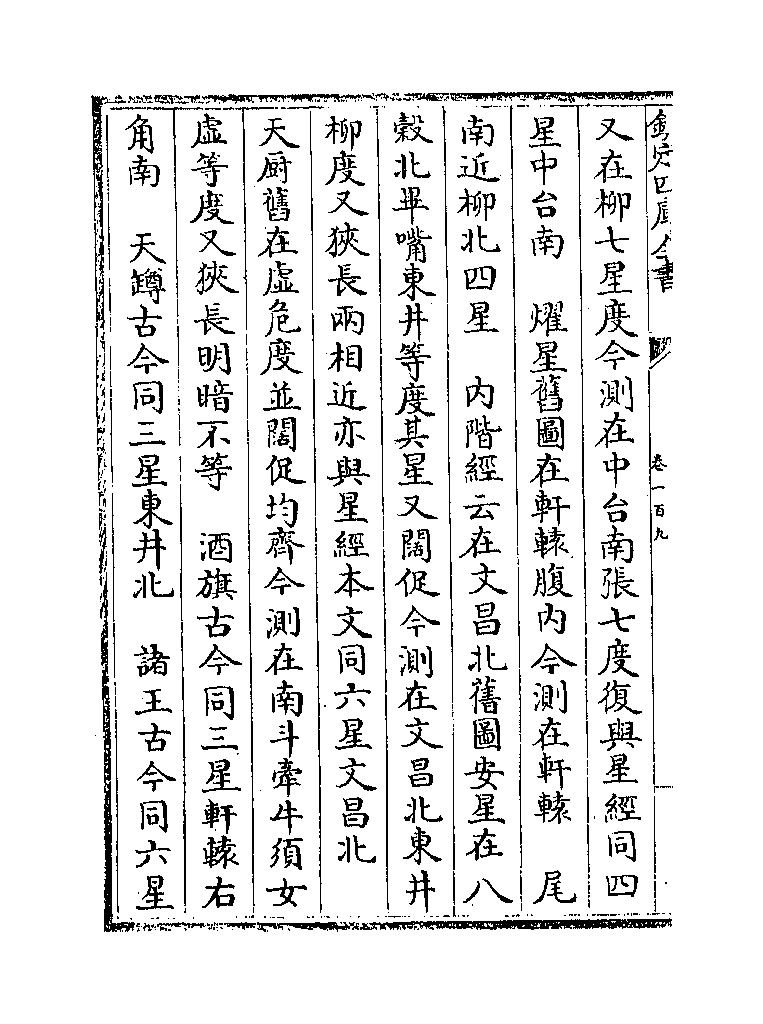 欽定四庫全書
卷一百九
又在柳七星度今測在中台南張七度復與星經同四
星中台南　爟星舊圖在軒轅腹内今測在軒轅　尾
南近柳北四星　内階經云在文昌北舊圖安星在八
榖北畢嘴東井等度其星又闊促今測在文昌北東井
柳度又狹長兩相近亦與星經本文同六星文昌北
天厨舊在虛危度並闊促均齊今測在南斗牽牛須女
虛等度又狹長明暗不等　酒旗古今同三星軒轅右
角南　天罇古今同三星東井北　諸王古今同六星